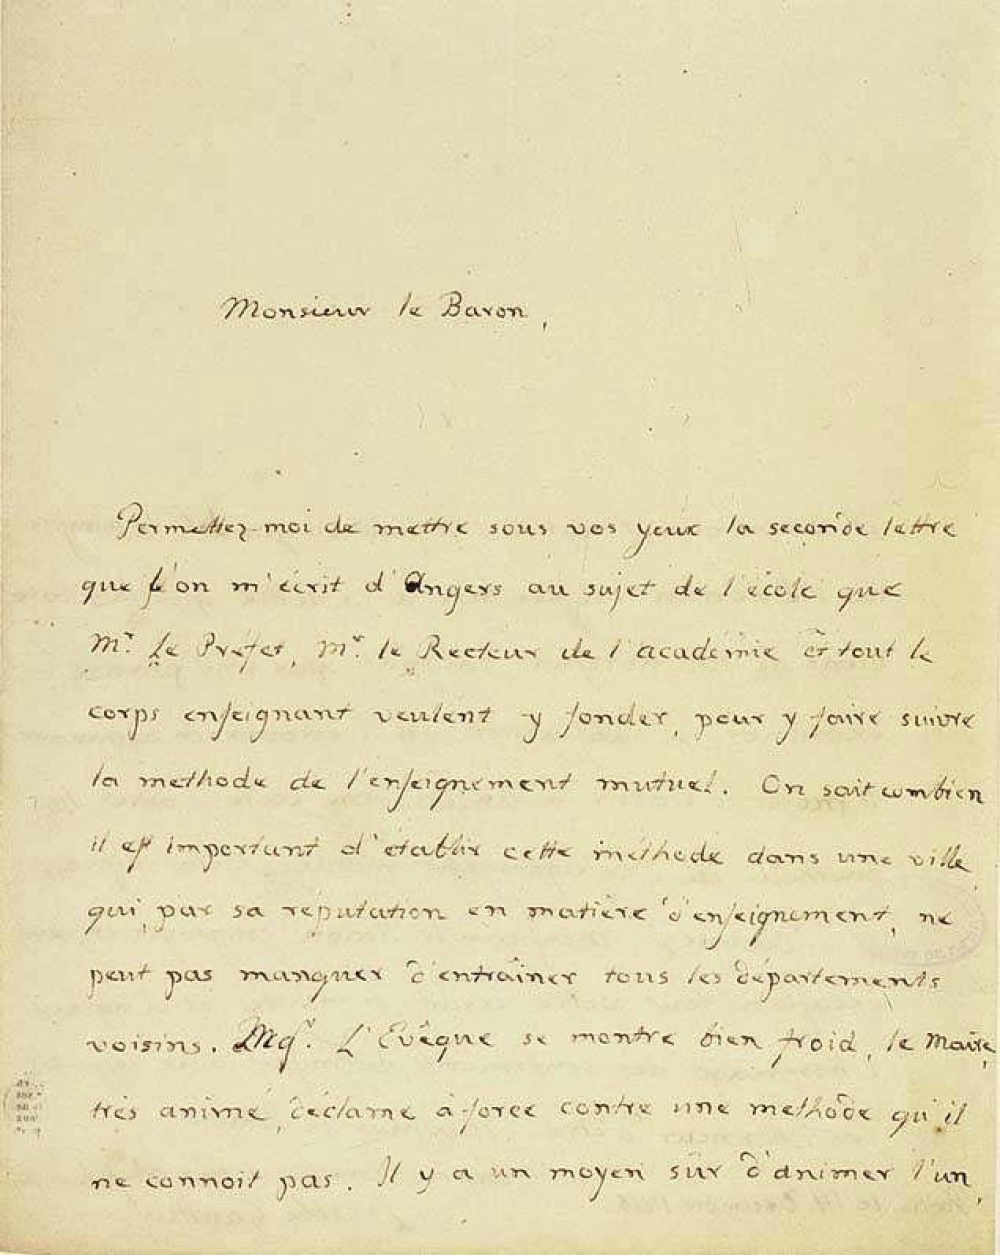 Monsieur le Baron,
Permettez-moi de mettre sous vos yeux la seconde lettre
que l'on m'écrit d'Angers au sujet de l'école que
Mr. Le Préfet, Mr. le Recteur de l'académie et tout le
corps enseignant veulent y fonder, pour y faire suivre
la methode de l'enseignement mutuel. On sait combien
il est important d'établir cette méthode dans une ville
qui, par sa réputation en matière d'enseignement, ne
peut pas manquer d'entraîner tous les départements
voisins. Mgr. L'Evêque se montre bien froid, le Maire,
très animé, déclame à force contre une methode qu'il
ne connoit pas. Il y a un moyen sûr d'animer l'un,